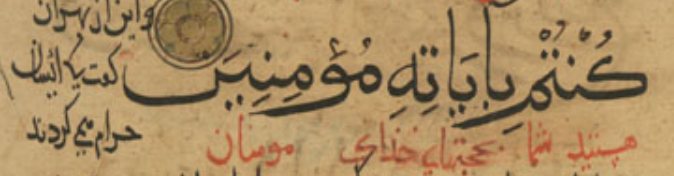 كُنْتُمْ بِاٰيَاتِهِ مُؤْمِنِينَ
هستید شما بحجتهای خدای مومنان
و این از بهر آن
گفت که ایشان
حرام می کردند